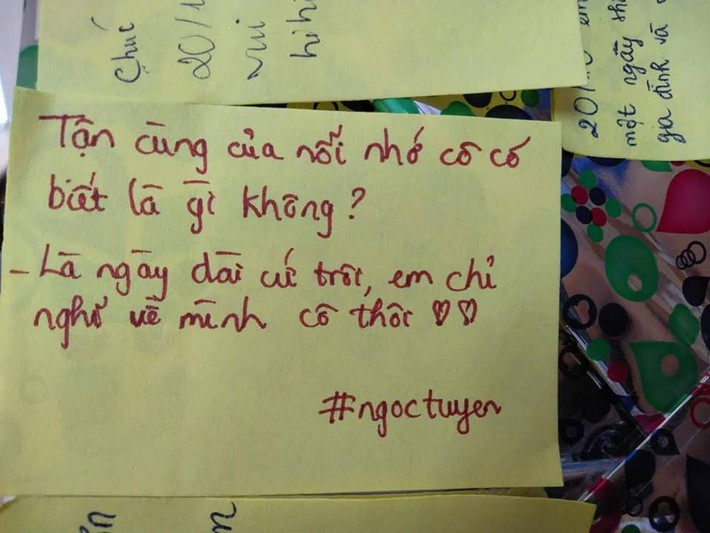 Chúc
20/1
vui
hihi
20/10 em
một ngày th
gia đình và
Tận cùng của nỗi nhớ cô có
biết là gì không?
- Là ngày dài cứ trôi, em chỉ
nghĩ về mình cô thôi ♡♡
#ngoctuyen